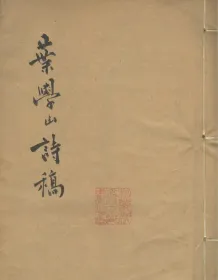 葉學山詩稿